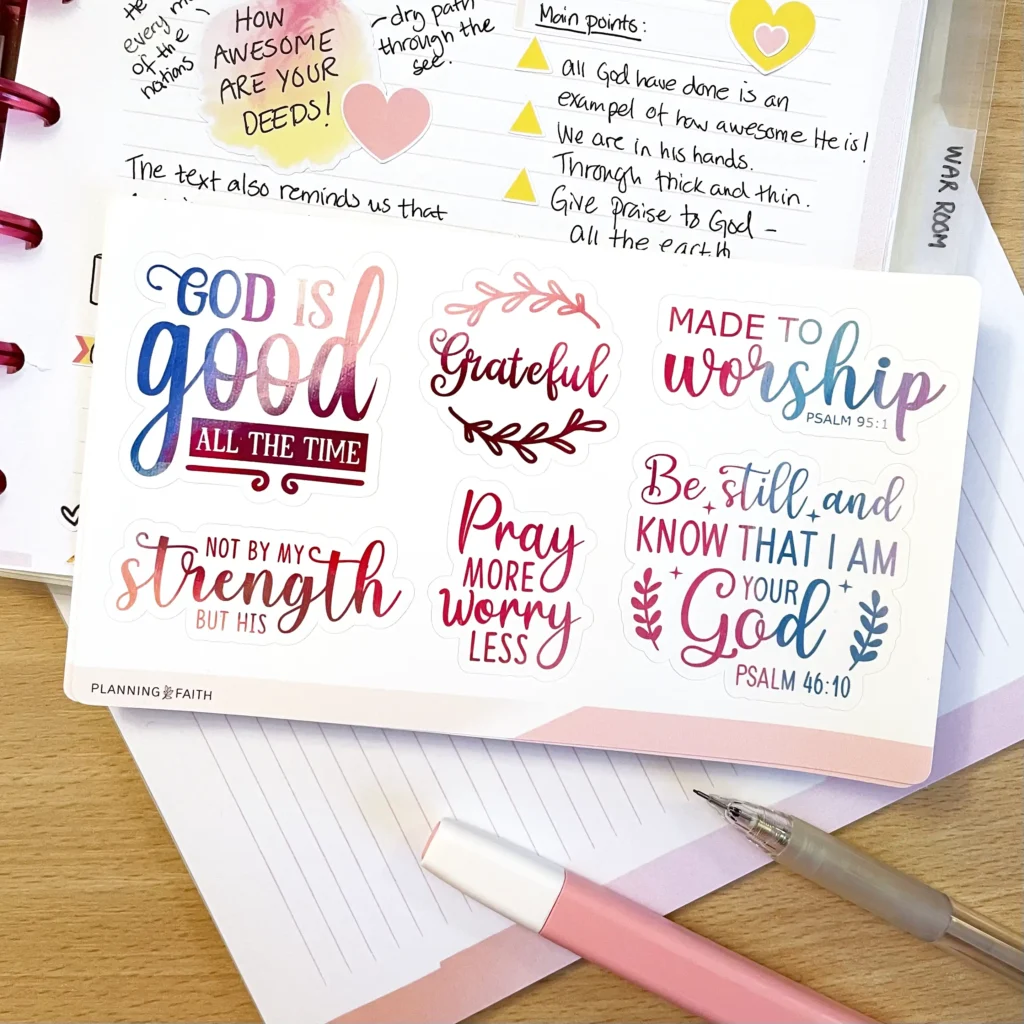 He
every m
of the
nations
HOW
AWESOME
ARE YOUR
DEEDS!
-dry path
through the
see.
Main points:
all God have done is an
exampel of how awesome He is!
We are in his hands.
Through thick and thin.
Give praise to God -
all the earth
The text also reminds us that
WAR ROOM
GOD IS
good
ALL THE TIME
Grateful
MADE TO
worship
PSALM 95:1
NOT BY MY
strength
BUT HIS
Pray
MORE
Worry
LESS
Be still and
KNOW THAT I AM
YOUR
God
PSALM 46:10
PLANNING FAITH